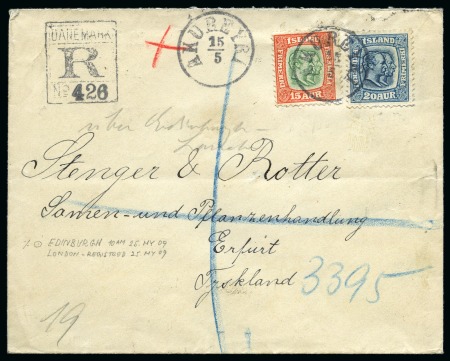 DANEMARK
R
No 426
AKUREYRI
15
5
ÍSLAND
15 AUR
ÍSLAND
20 AUR
über Edinburgh -
London
Stenger & Rotter
Samen- und Pflanzenhandlung
Erfurt
Tyskland
EDINBURGH 10AM 25. MY 09
LONDON - REGISTERED 25. MY 09
3395
19